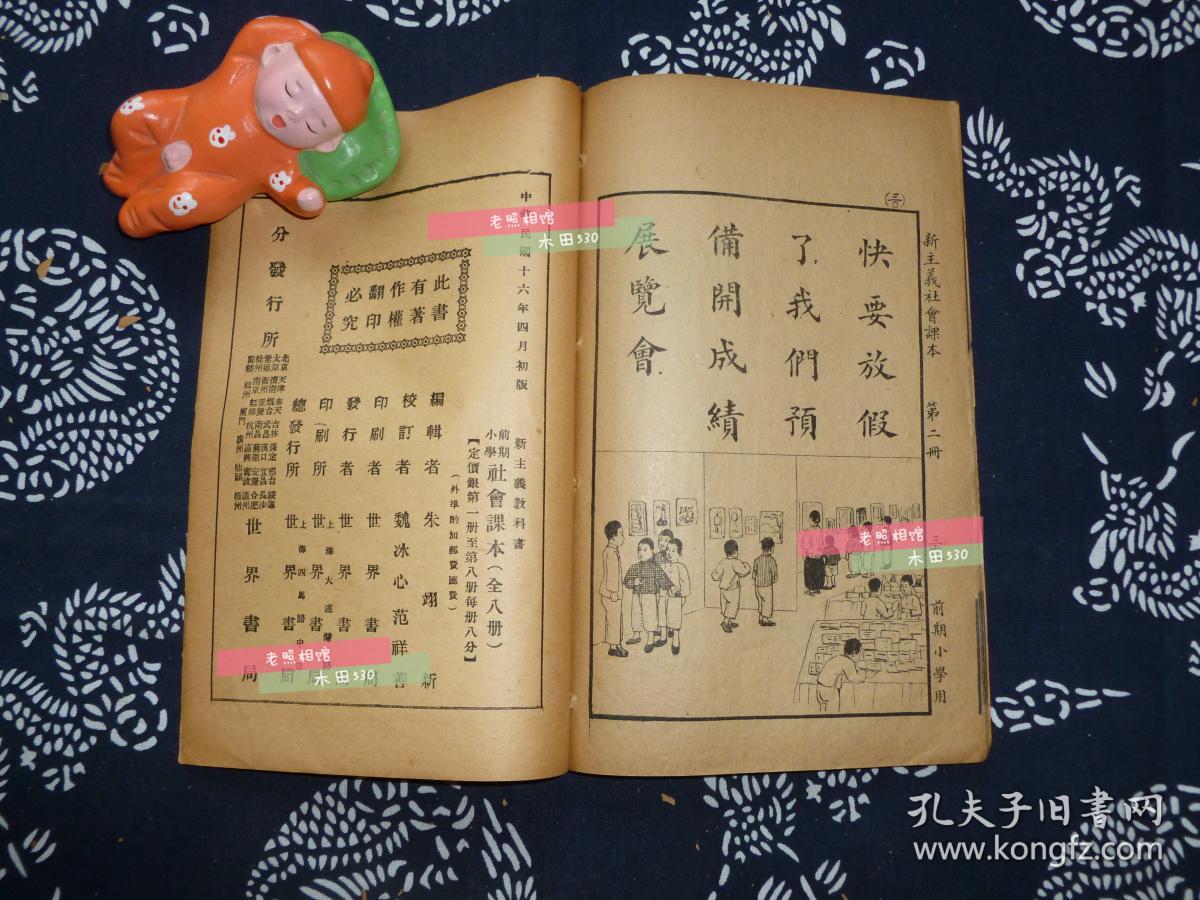 新主義社會課本
第二冊
前期小學用
快要放假
了我們預
備開成績
展覽會
中華民國十六年四月初版
新主義教科書
前期小學社會課本(全八册)
【定價銀第一册至第八册每册八分】
(外埠酌加郵費匯費)
編輯者 朱翊新
校訂者 魏冰心 范祥善
印刷者 世界書局
發行者 世界書局
印刷所 上海大連灣路 世界書局
總發行所 上海四馬路 世界書局
此書
有著
作權
翻印
必究
分發行所
世界書局
老照相馆
木田530
老照相馆
木田530
老照相馆
木田530
孔夫子旧书网
www.kongfz.com